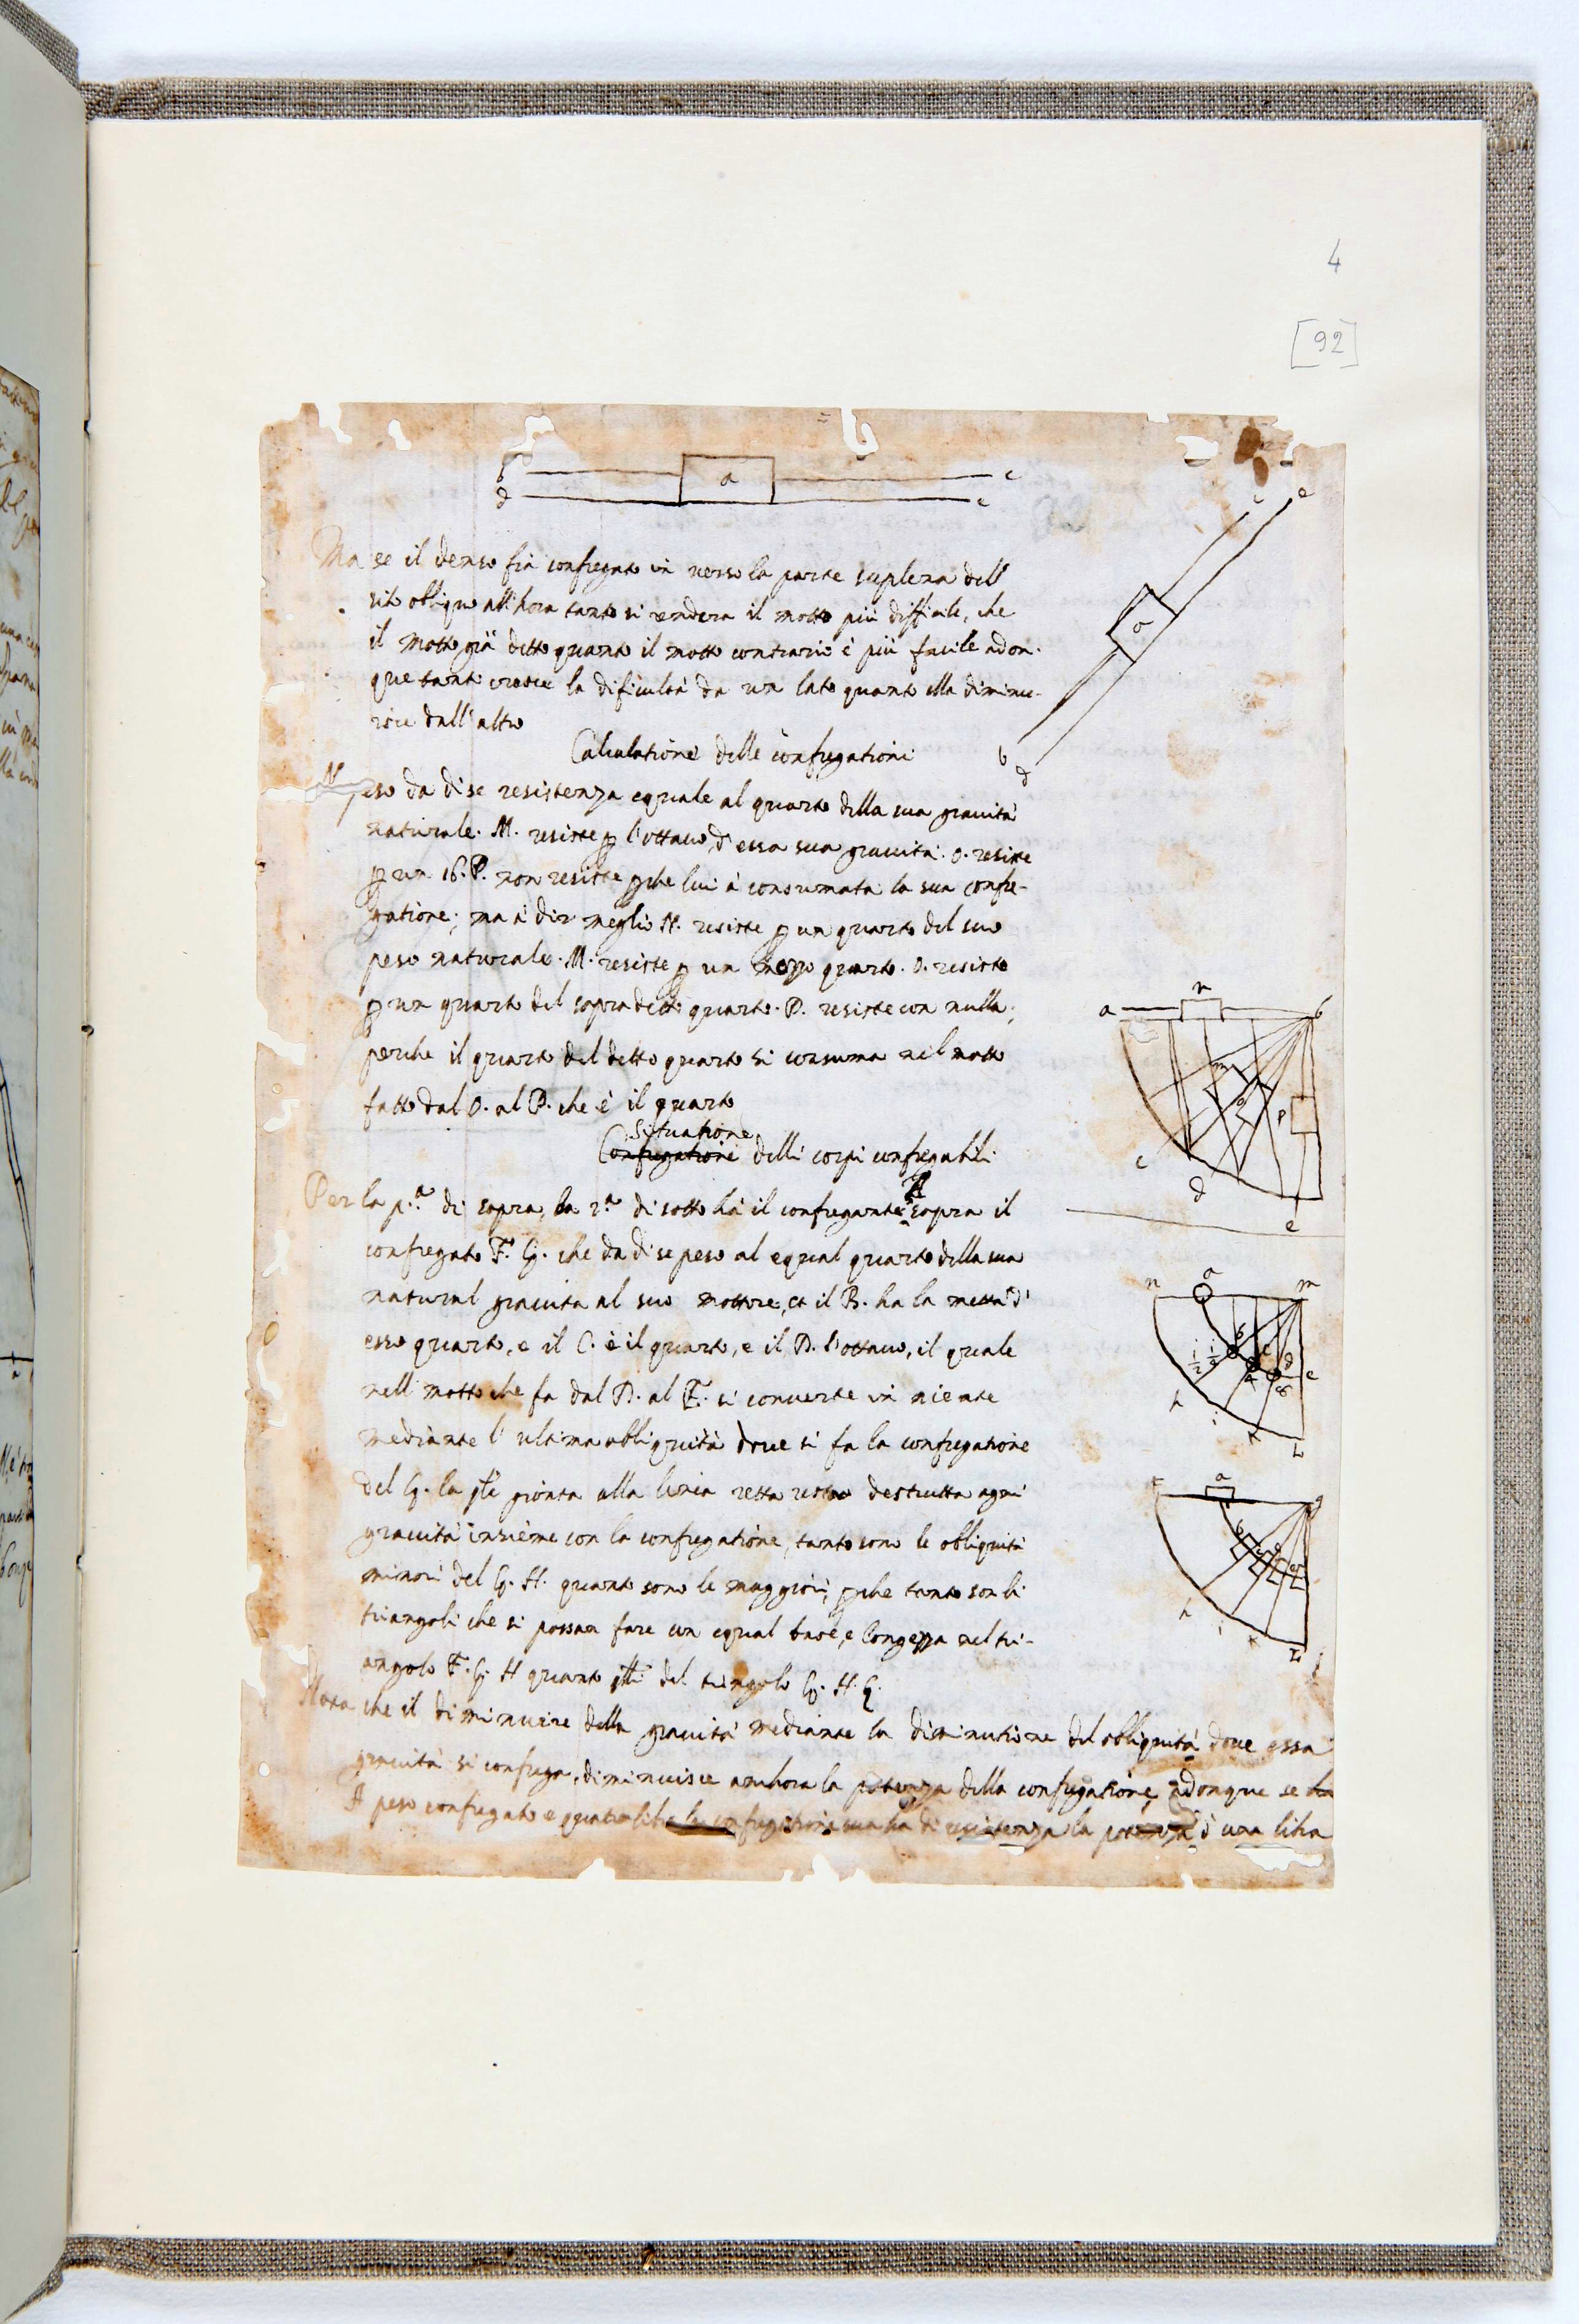 4
[92]
b a c
d e
c e
o
b d
Ma se il denso fia confregato in verso la parte suplema dell
sito obbliquo all'hora tanto si rendera il motto più difficile, che
il motto già detto quanto il motto contrario è più facile adon-
que tanto cresce la dificultà da un lato quanto ella diminu-
isce dall'altro
Calculatione delle confregationi
N peso da di se resistenza equale al quarto della sua gravità
naturale. M. resiste p l'ottavo d'essa sua gravità. O. resiste
p un 16. P. non resiste pche lui à consumata la sua confre-
gatione; ma à dir meglio N. resiste p un quarto del suo
peso naturale. M. resiste p un mezzo quarto. O. resiste
p un quarto del sopradetto quarto. P. resiste con nulla,
perche il quarto del detto quarto si consuma nel motto
fatto dal O. al P. che è il quarto
Situatione
Confregationi delli corpi confregabili
Per la p.ª di sopra, la 2.ª di sotto hà il confregante A sopra il
confregato F. G. che da di se peso al equal quarto della sua
natural gravita al suo mottore, et il B. ha la metta d'
esso quarto, e il C. è il quarto, e il D. l'ottavo, il quale
nell motto che fa dal D. al E. si converte in niente
mediante l'ultima obbliquità dove si fa la confregatione
del G. la gionta alla linia retta resta destrutta ogni
gravità insieme con la confregatione, tanto sono le obliquità
minori del G. H. quanto sono le maggiori, pche tanto son li
triangoli che si possan fare con equal base, e longezza nel tri-
angolo F. G. H quanto del triangolo G. H.
Nota che il diminuire della gravità mediante la diminutione del obliquità dove essa
gravità si confrega, diminuisce anchora la potenza della confregatione, adonque se
A peso confregato e quatro libre la confregatione sua ha di resistenza la potenza d'una libra
a n b
m
o p
c
d
e
n a m
b c d e
h i k L
F a g
b c d e
h i k L